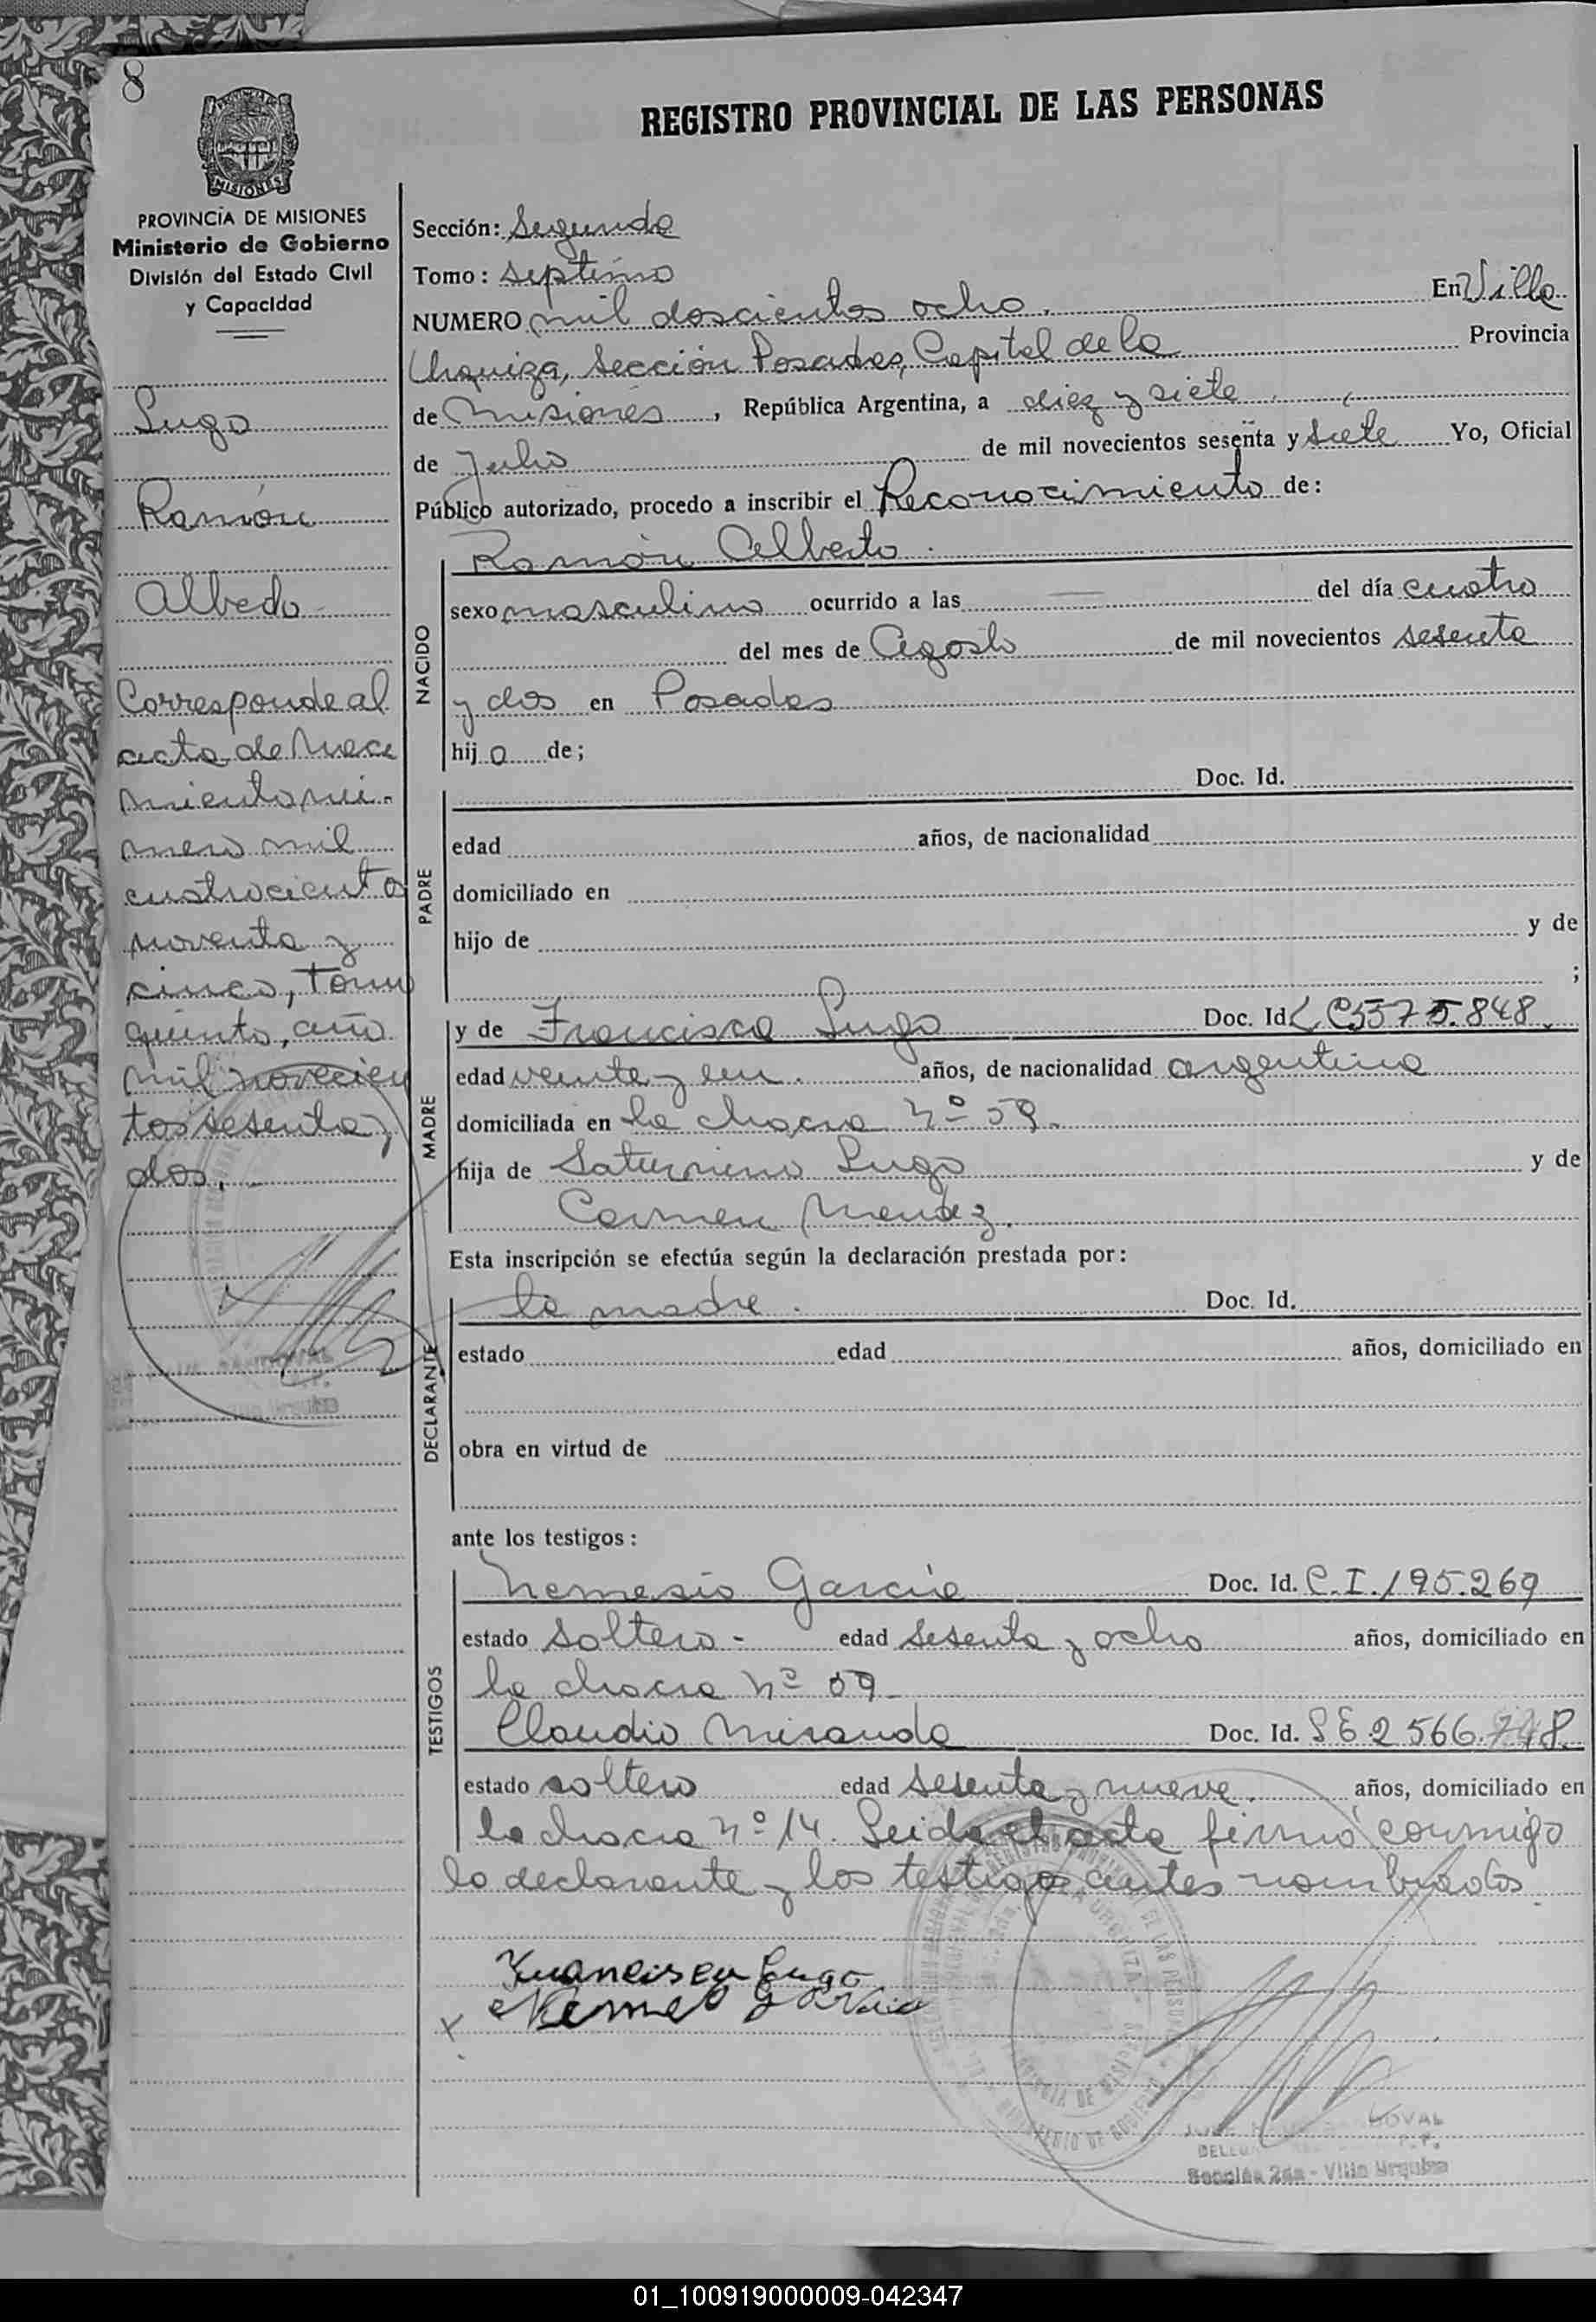 8
PROVINCIA DE MISIONES
Ministerio de Gobierno
División del Estado Civil
y Capacidad
Lugo
Ramón
Alberto
Corresponde al
acta de Naci
miento nú-
mero mil
cuatrocientos
noventa y
cinco, Tomo
quinto, año
mil novecien
tos sesenta y
dos.
REGISTRO PROVINCIAL DE LAS PERSONAS
Sección: Segunda
Tomo: Septimo
NUMERO mil doscientos ocho. En Villa
Urquiza, Sección Posadas, Capital de la Provincia
de Misiones, República Argentina, a diez y siete
de Julio de mil novecientos sesenta y siete Yo, Oficial
Público autorizado, procedo a inscribir el Reconocimiento de:
Ramón Alberto.
NACIDO
sexo masculino ocurrido a las — del día cuatro
del mes de Agosto de mil novecientos sesenta
y dos en Posadas
hijo de;
PADRE
Doc. Id.
edad años, de nacionalidad
domiciliado en
hijo de y de
;
MADRE
y de Francisca Lugo Doc. Id. L C 5575.848.
edad veinte y un. años, de nacionalidad argentina
domiciliada en la chacra Nº 59.
hija de Saturnino Lugo y de
Carmen Mendez.
Esta inscripción se efectúa según la declaración prestada por:
DECLARANTE
la madre. Doc. Id.
estado edad años, domiciliado en
obra en virtud de
ante los testigos:
TESTIGOS
Nemesio Garcia Doc. Id. C.I. 195.269
estado soltero- edad sesenta y ocho años, domiciliado en
la chacra Nº 59-
Claudio Miranda Doc. Id. 2 566.
estado soltero edad sesenta y nueve. años, domiciliado en
la chacra Nº 14. Leida el acta firmó conmigo
la declarante y los testigos antes nombrados
Francisca Lugo
Garcia
Sección 2da - Villa Urquiza
01_100919000009-042347